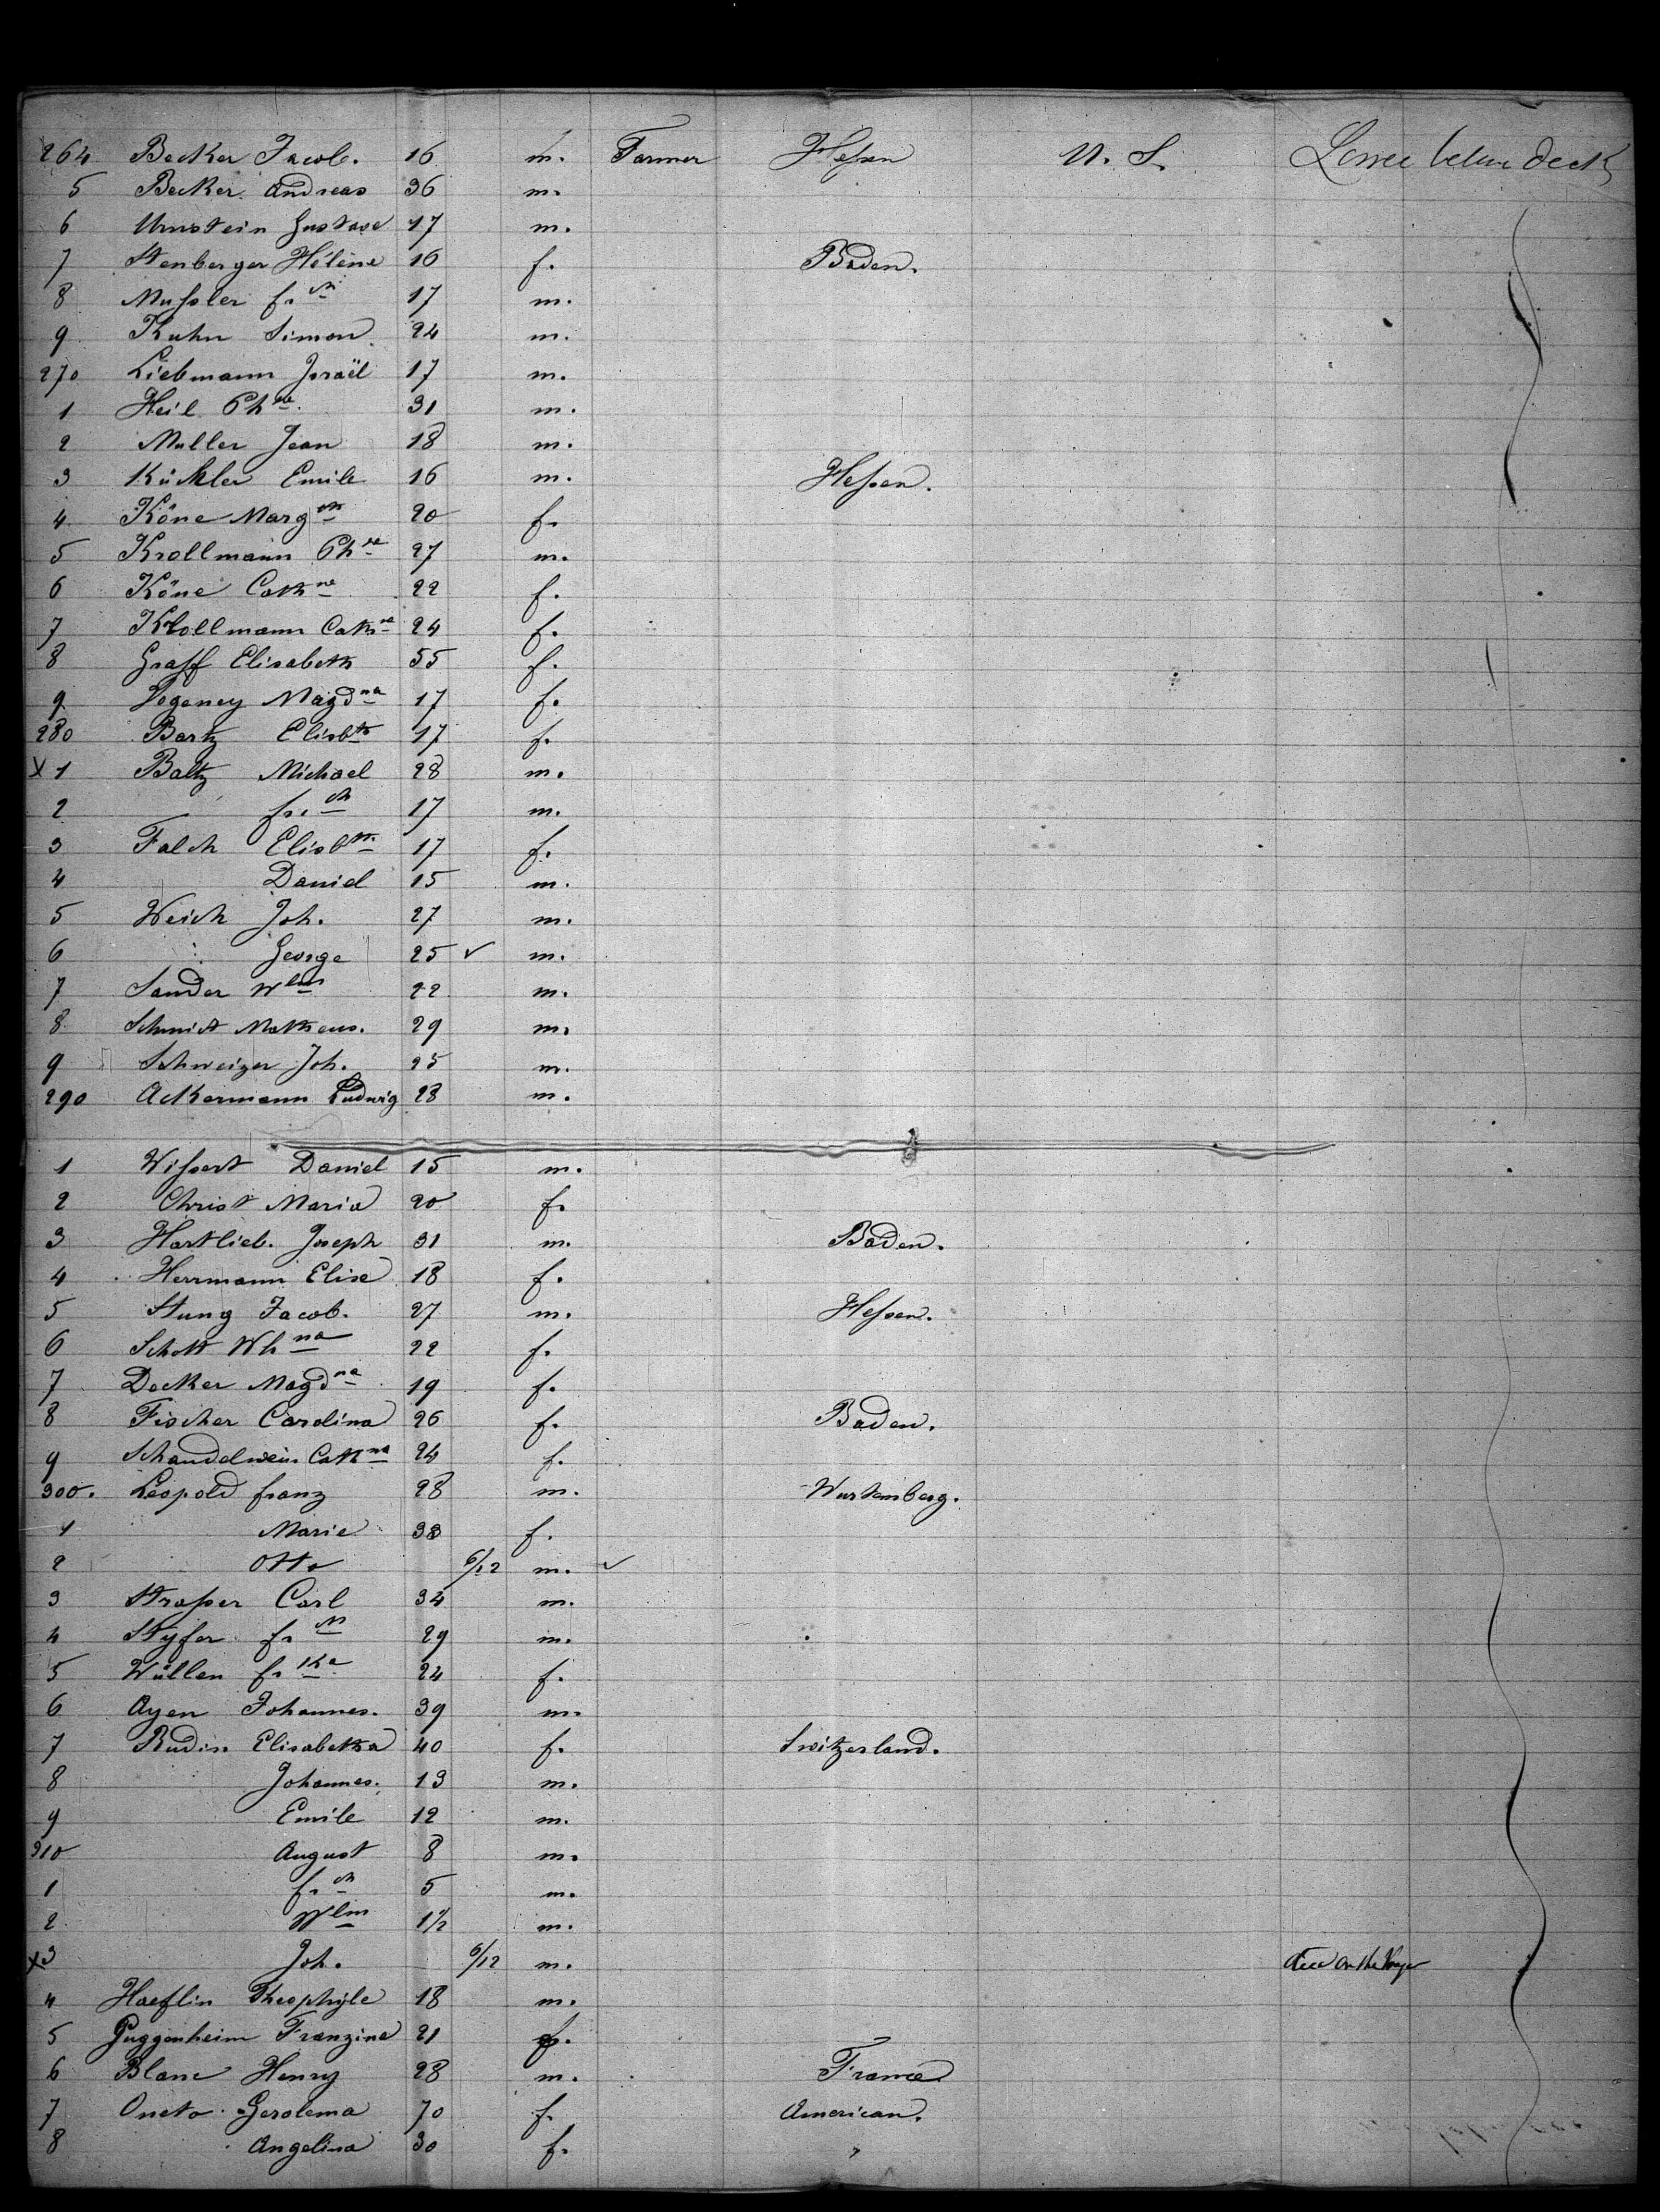 264 Becker Jacob. 16 m. Farmer Hessen U. S. Lower below deck
5 Becker Andreas 36 m.
6 Urnstein Gustave 17 m.
7 Stenberger Hélène 16 f. Baden.
8 Mussler fr ch 17 m.
9 Kuhn Simon 24 m.
270 Liebmann Israël 17 m.
1 Heil Ph 31 m.
2 Muller Jean 18 m.
3 Emile 16 m. Hessen.
4 Köne Marg 20 f.
5 Krollmann Ph 27 m.
6 Köne Cath ne 22 f.
7 Krollmann Cath ne 24 f.
8 Graff Elisabeth 55 f.
9 Magd na 17 f.
280 Bartz Elisbth 17 f.
X 1 Baltz Michael 28 m.
2 fr. ch 17 m.
3 Falch Elisbth 17 f.
4 Daniel 15 m.
5 Weich Joh. 27 m.
6 George 25 ✓ m.
7 Sander Wlm 22 m.
8 Schmidt Matheus. 29 m.
9 Schweizer Joh. 25 m.
290 Ackermann Ludwig 28 m.
1 Wissert Daniel 15 m.
2 Christ Maria 20 f.
3 Hartlieb. Joseph 31 m. Baden.
4 Herrmann Elise 18 f.
5 Stung Jacob. 27 m. Hessen.
6 Schott Wh na 22 f.
7 Decker Magd na 19 f.
8 Fischer Carolina 26 f. Baden.
9 Schandelwein Cath na 24 f.
300. Léopold franz 28 m. Wurtemberg.
1 Marie 38 f.
2 Otto 6/12 m. ✓
3 Strasser Carl 34 m.
4 Styfer fr ch 29 m.
5 Wüllen fr ka 24 f.
6 Ayen Johannes. 39 m.
7 Rudin Elisabetha 40 f. Switzerland.
8 Johannes. 13 m.
9 Emile 12 m.
310 August 8 m.
1 fr ch 5 m.
2 Wlm 1 1/2 m.
X3 Joh. 6/12 m. on the
4 Haeflin Theophyle 18 m.
5 Guggenheim Franzine 21 f.
6 Blanc Henry 28 m. France
7 Oneto Gerolema 70 f. American.
8 Angelina 30 f. "